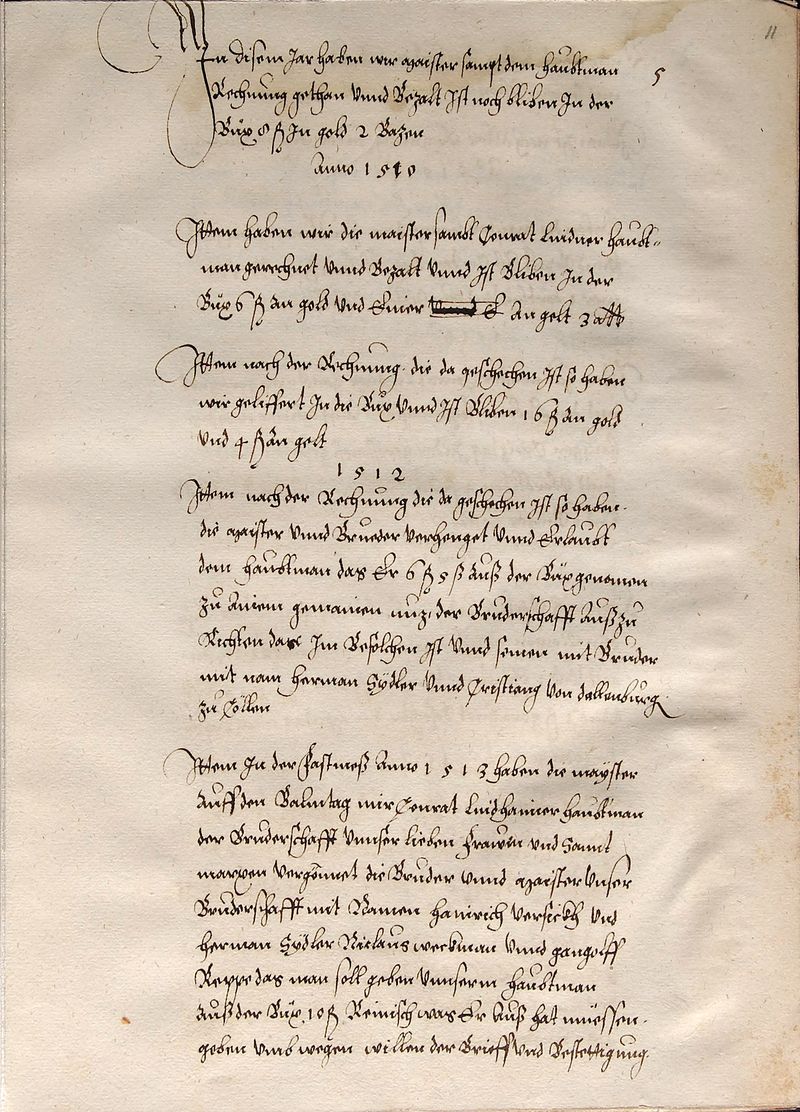 11
5
In disem Jar haben wir maister sampt dem haubtman
Rechnung gethan vnnd Bezalt Ist noch bliben In der
Büx 8 fl In gold 2 Bazen
Anno 1510
Ittem haben wir die maister sambt Conrat Lindner haubt-
man gerechnet vnnd Bezalt vnnd Ist Bliben In der
Büx 6 fl an gold vnd An gelt
Ittem nach der Rechnung die da geschechen Ist so haben
wir geliffert In die Büx vnnd Ist Bliben 16 fl An gold
vnd 4 fl An gelt
1512
Ittem nach der Rechnung die da geschechen Ist so haben
die maister vnnd Brueder verhenget vnnd Erlaubt
dem haubtman das Er 6 fl 5 ß Auß der Büx genomen
zu Ainem gemainen nuz der Bruderschafft Auß zu
Richten das Im Befolchen Ist vnnd seinen mit Bruder
mit nam herman Sydler vnnd Cristiang von dallenburg
zu Cöllen
Ittem In der Fastmeß Anno 1513 haben die mayster
Auff den Balmtag mir Conrat haubtman
der Bruderschafft vnnser lieben Frawen vnd Sannt
marxen vergönnet die Bruder vnnd maister vnser
Bruderschafft mit Namen hainrich vnd
herman Sydler Niclaus weckman vnnd gangolff
Reppe das man soll geben vnnserm haubtman
Auß der Büx 10 fl Reinisch was Er Auß hat müessen
geben vmb wegen willen der Brieff vnd Bestettigung